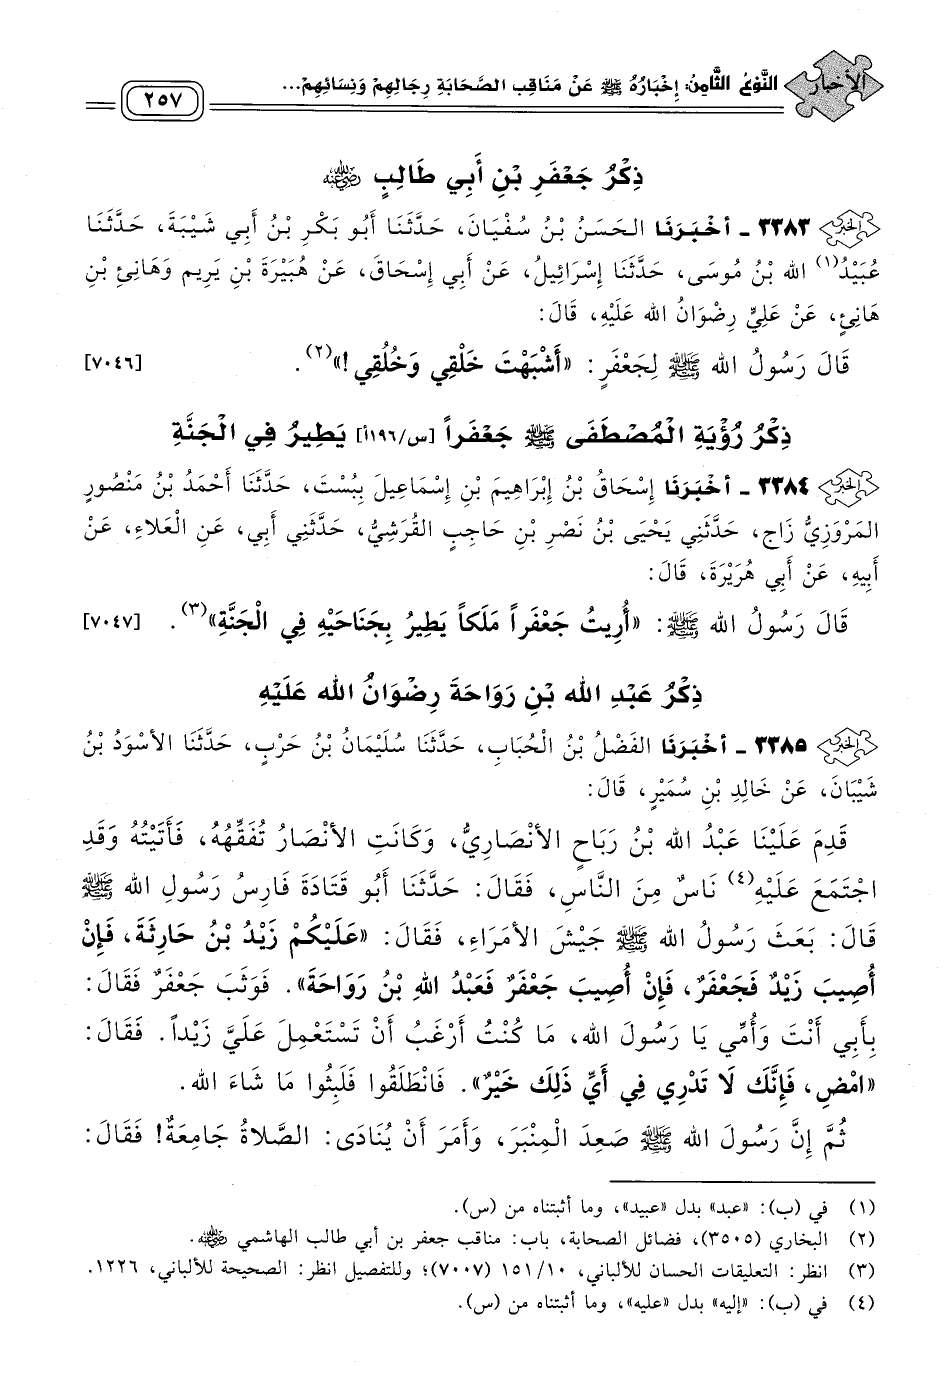 الأخبار
النَّوْعُ الثَّامِنُ: إِخْبَارُهُ ﷺ عَنْ مَنَاقِبِ الصَّحَابَةِ رِجَالِهِمْ وَنِسَائِهِمْ...
٢٥٧
ذِكْرُ جَعْفَرِ بْنِ أَبِي طَالِبٍ رضي الله عنه
٣٣٨٣ ـ أَخْبَرَنَا الحَسَنُ بْنُ سُفْيَانَ، حَدَّثَنَا أَبُو بَكْرِ بْنُ أَبِي شَيْبَةَ، حَدَّثَنَا
عُبَيْدُ(١) الله بْنُ مُوسَى، حَدَّثَنَا إِسْرَائِيلُ، عَنْ أَبِي إِسْحَاقَ، عَنْ هُبَيْرَةَ بْنِ يَرِيم وَهَانِئِ بْنِ
هَانِئٍ، عَنْ عَلِيٍّ رِضْوَانُ الله عَلَيْهِ، قَالَ:
قَالَ رَسُولُ الله ﷺ لِجَعْفَرٍ: «أَشْبَهْتَ خَلْقِي وَخُلُقِي!»(٢). [٧٠٤٦]
ذِكْرُ رُؤْيَةِ الْمُصْطَفَى ﷺ جَعْفَراً [س/١٩٦أ] يَطِيرُ فِي الْجَنَّةِ
٣٣٨٤ ـ أَخْبَرَنَا إِسْحَاقُ بْنُ إِبْرَاهِيمَ بْنِ إِسْمَاعِيلَ بِبُسْتَ، حَدَّثَنَا أَحْمَدُ بْنُ مَنْصُورٍ
المَرْوَزِيُّ زَاج، حَدَّثَنِي يَحْيَى بْنُ نَصْرِ بْنِ حَاجِبٍ القُرَشِيُّ، حَدَّثَنِي أَبِي، عَنِ الْعَلاءِ، عَنْ
أَبِيهِ، عَنْ أَبِي هُرَيْرَةَ، قَالَ:
قَالَ رَسُولُ الله ﷺ: «أُرِيتُ جَعْفَراً مَلَكاً يَطِيرُ بِجَنَاحَيْهِ فِي الْجَنَّةِ»(٣). [٧٠٤٧]
ذِكْرُ عَبْدِ الله بْنِ رَوَاحَةَ رِضْوَانُ الله عَلَيْهِ
٣٣٨٥ ـ أَخْبَرَنَا الفَضْلُ بْنُ الْحُبَابِ، حَدَّثَنَا سُلَيْمَانُ بْنُ حَرْبٍ، حَدَّثَنَا الأَسْوَدُ بْنُ
شَيْبَانَ، عَنْ خَالِدِ بْنِ سُمَيْرٍ، قَالَ:
قَدِمَ عَلَيْنَا عَبْدُ الله بْنُ رَبَاحٍ الأَنْصَارِيُّ، وَكَانَتِ الأَنْصَارُ تُفَقِّهُهُ، فَأَتَيْتُهُ وَقَدِ
اجْتَمَعَ عَلَيْهِ(٤) نَاسٌ مِنَ النَّاسِ، فَقَالَ: حَدَّثَنَا أَبُو قَتَادَةَ فَارِسُ رَسُولِ الله ﷺ
قَالَ: بَعَثَ رَسُولُ الله ﷺ جَيْشَ الأُمَرَاءِ، فَقَالَ: «عَلَيْكُمْ زَيْدُ بْنُ حَارِثَةَ، فَإِنْ
أُصِيبَ زَيْدٌ فَجَعْفَرٌ، فَإِنْ أُصِيبَ جَعْفَرٌ فَعَبْدُ اللهِ بْنُ رَوَاحَةَ». فَوَثَبَ جَعْفَرٌ فَقَالَ:
بِأَبِي أَنْتَ وَأُمِّي يَا رَسُولَ الله، مَا كُنْتُ أَرْغَبُ أَنْ تَسْتَعْمِلَ عَلَيَّ زَيْداً. فَقَالَ:
«امْضِ، فَإِنَّكَ لَا تَدْرِي فِي أَيِّ ذَلِكَ خَيْرٌ». فَانْطَلَقُوا فَلَبِثُوا مَا شَاءَ الله.
ثُمَّ إِنَّ رَسُولَ الله ﷺ صَعِدَ الْمِنْبَرَ، وَأَمَرَ أَنْ يُنَادَى: الصَّلاةُ جَامِعَةٌ! فَقَالَ:
(١) في (ب): «عبد» بدل «عبيد»، وما أثبتناه من (س).
(٢) البخاري (٣٥٠٥)، فضائل الصحابة، باب: مناقب جعفر بن أبي طالب الهاشمي رضي الله عنه.
(٣) انظر: التعليقات الحسان للألباني، ١٥١/١٠ (٧٠٠٧)؛ وللتفصيل انظر: الصحيحة للألباني، ١٢٢٦.
(٤) في (ب): «إليه» بدل «عليه»، وما أثبتناه من (س).